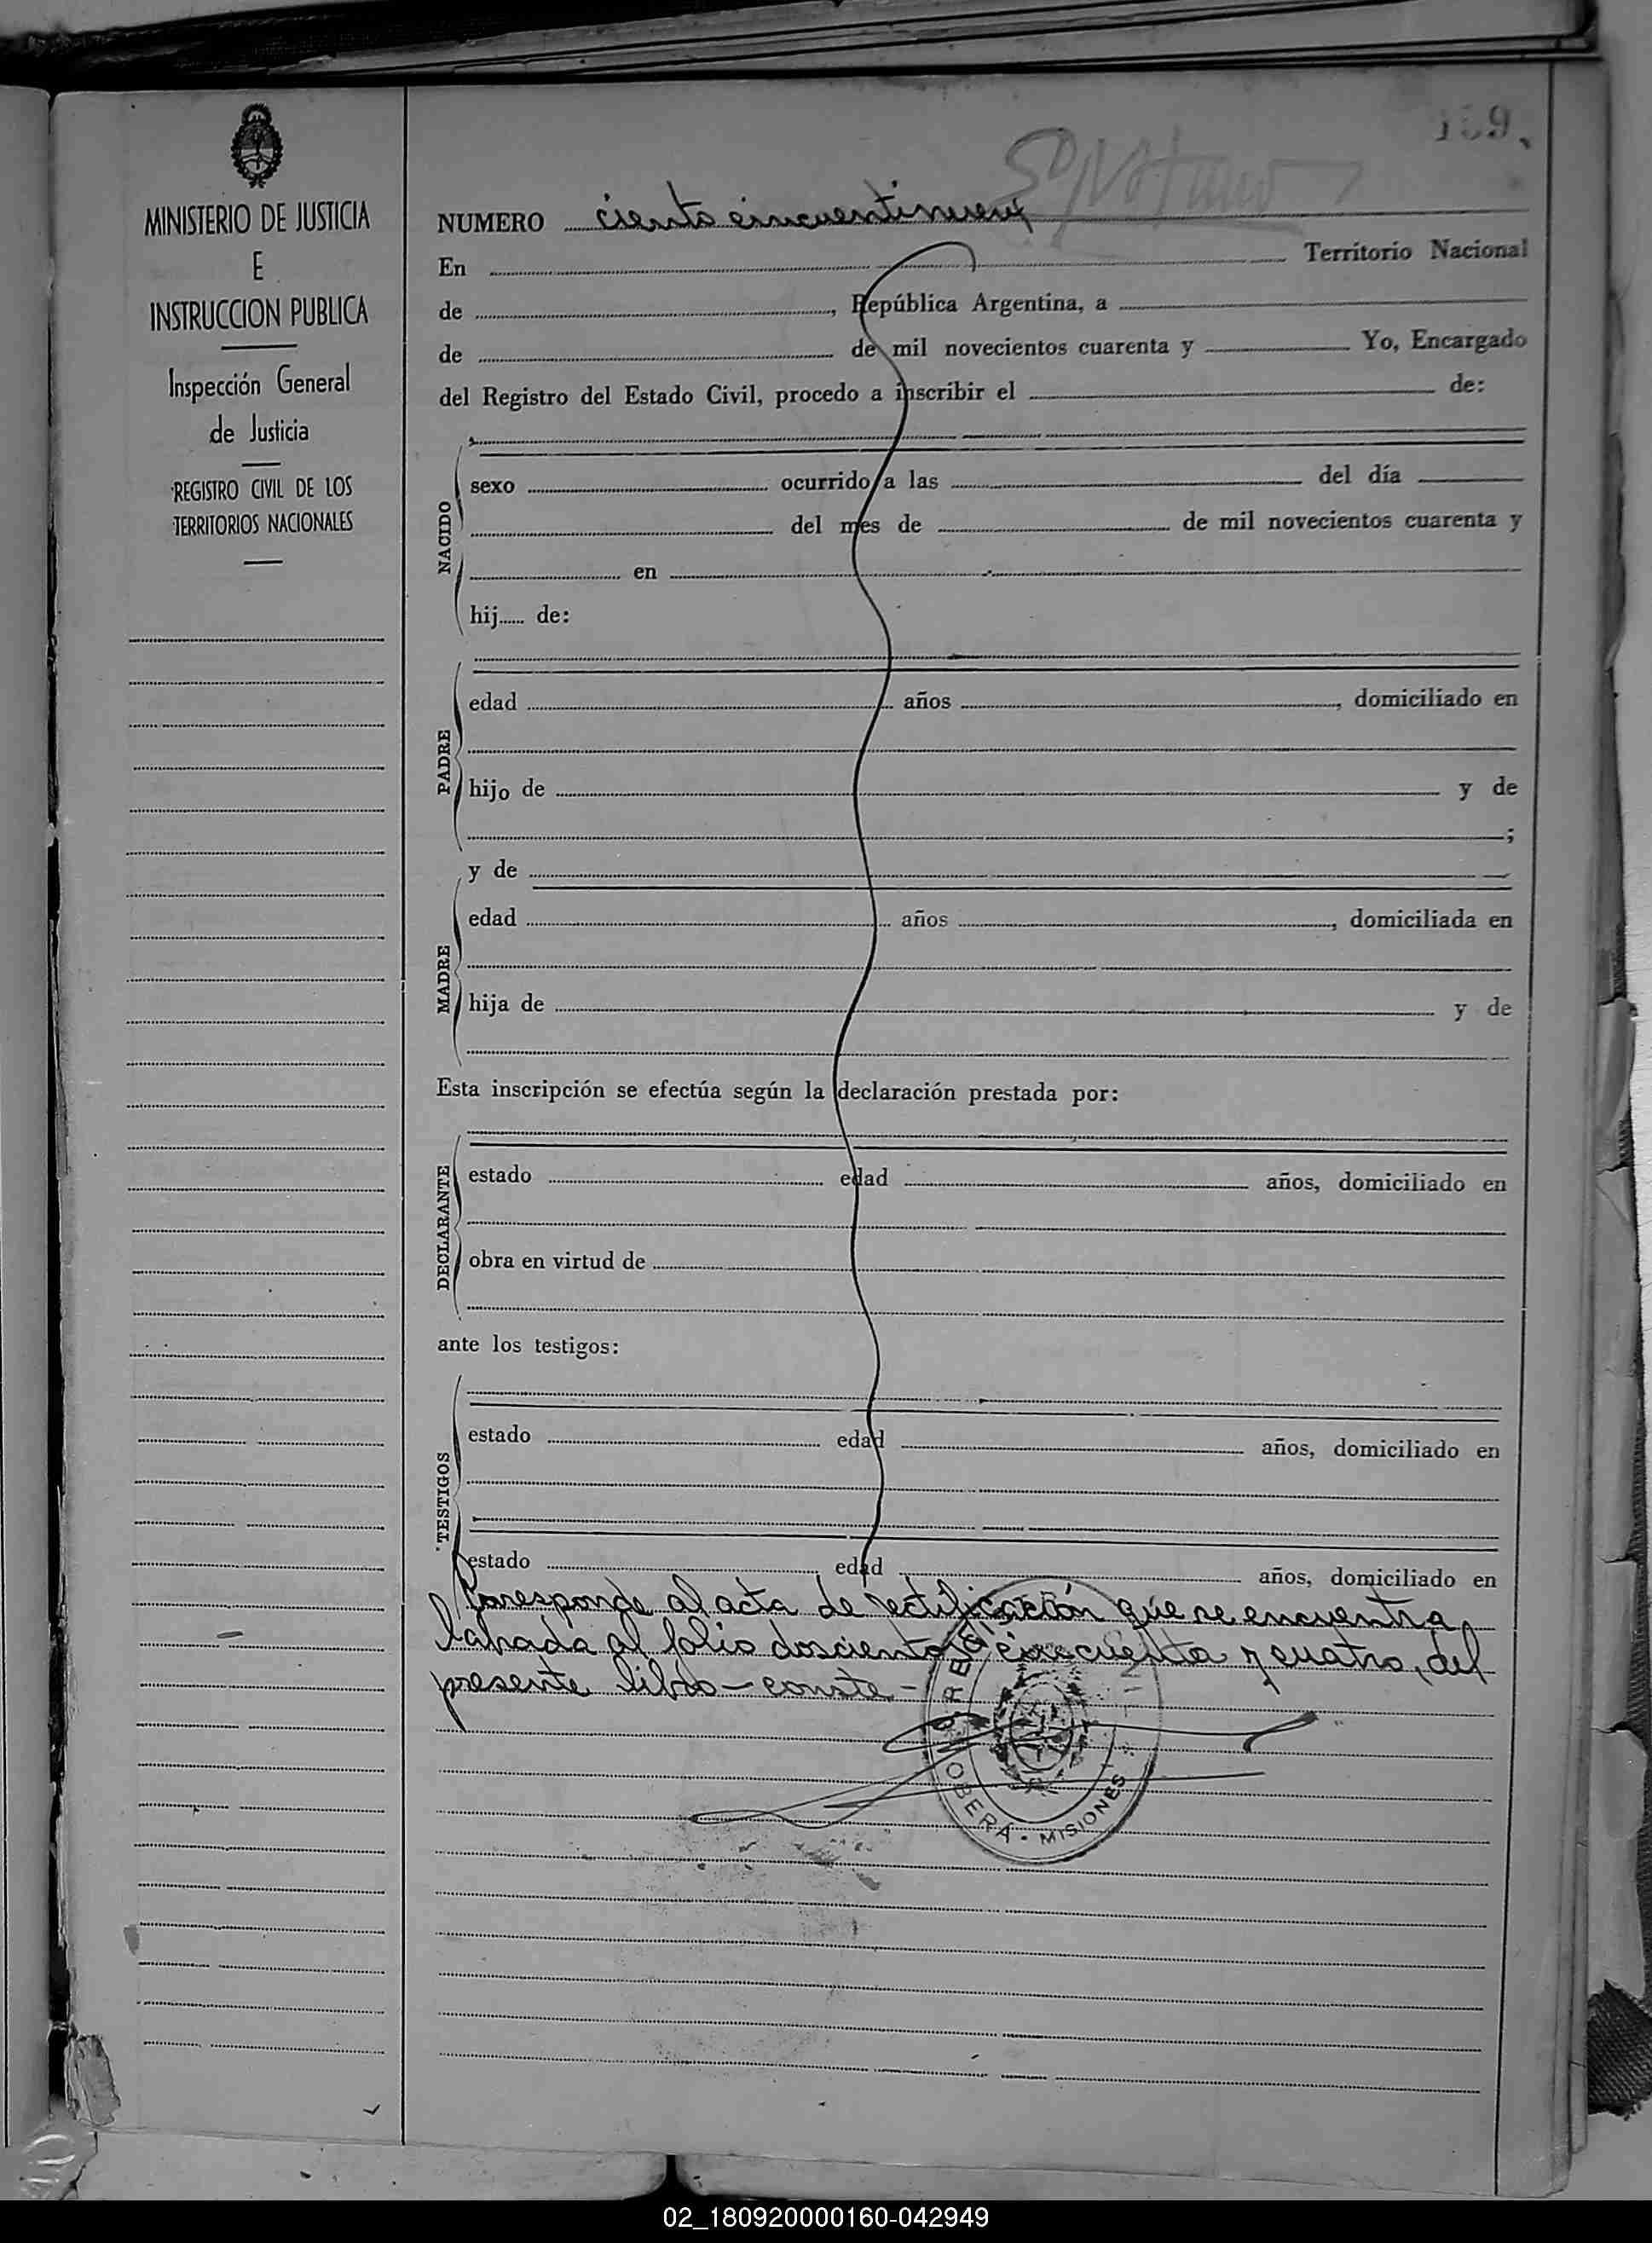 159.
MINISTERIO DE JUSTICIA
E
INSTRUCCION PUBLICA
Inspección General
de Justicia
REGISTRO CIVIL DE LOS
TERRITORIOS NACIONALES
NUMERO ciento cincuentinueve
En Territorio Nacional
de , República Argentina, a
de de mil novecientos cuarenta y Yo, Encargado
del Registro del Estado Civil, procedo a inscribir el de:
NACIDO
sexo ocurrido a las del día
del mes de de mil novecientos cuarenta y
en
hij...... de:
PADRE
edad años , domiciliado en
hijo de y de
;
y de
MADRE
edad años , domiciliada en
hija de y de
Esta inscripción se efectúa según la declaración prestada por:
DECLARANTE
estado edad años, domiciliado en
obra en virtud de
ante los testigos:
TESTIGOS
estado edad años, domiciliado en
estado edad años, domiciliado en
Coresponde al acta de rectificación que se encuentra
labrada al folio doscientos cincuenta y cuatro, del
presente libro - conste -
OBERÁ - MISIONES
02_180920000160-042949